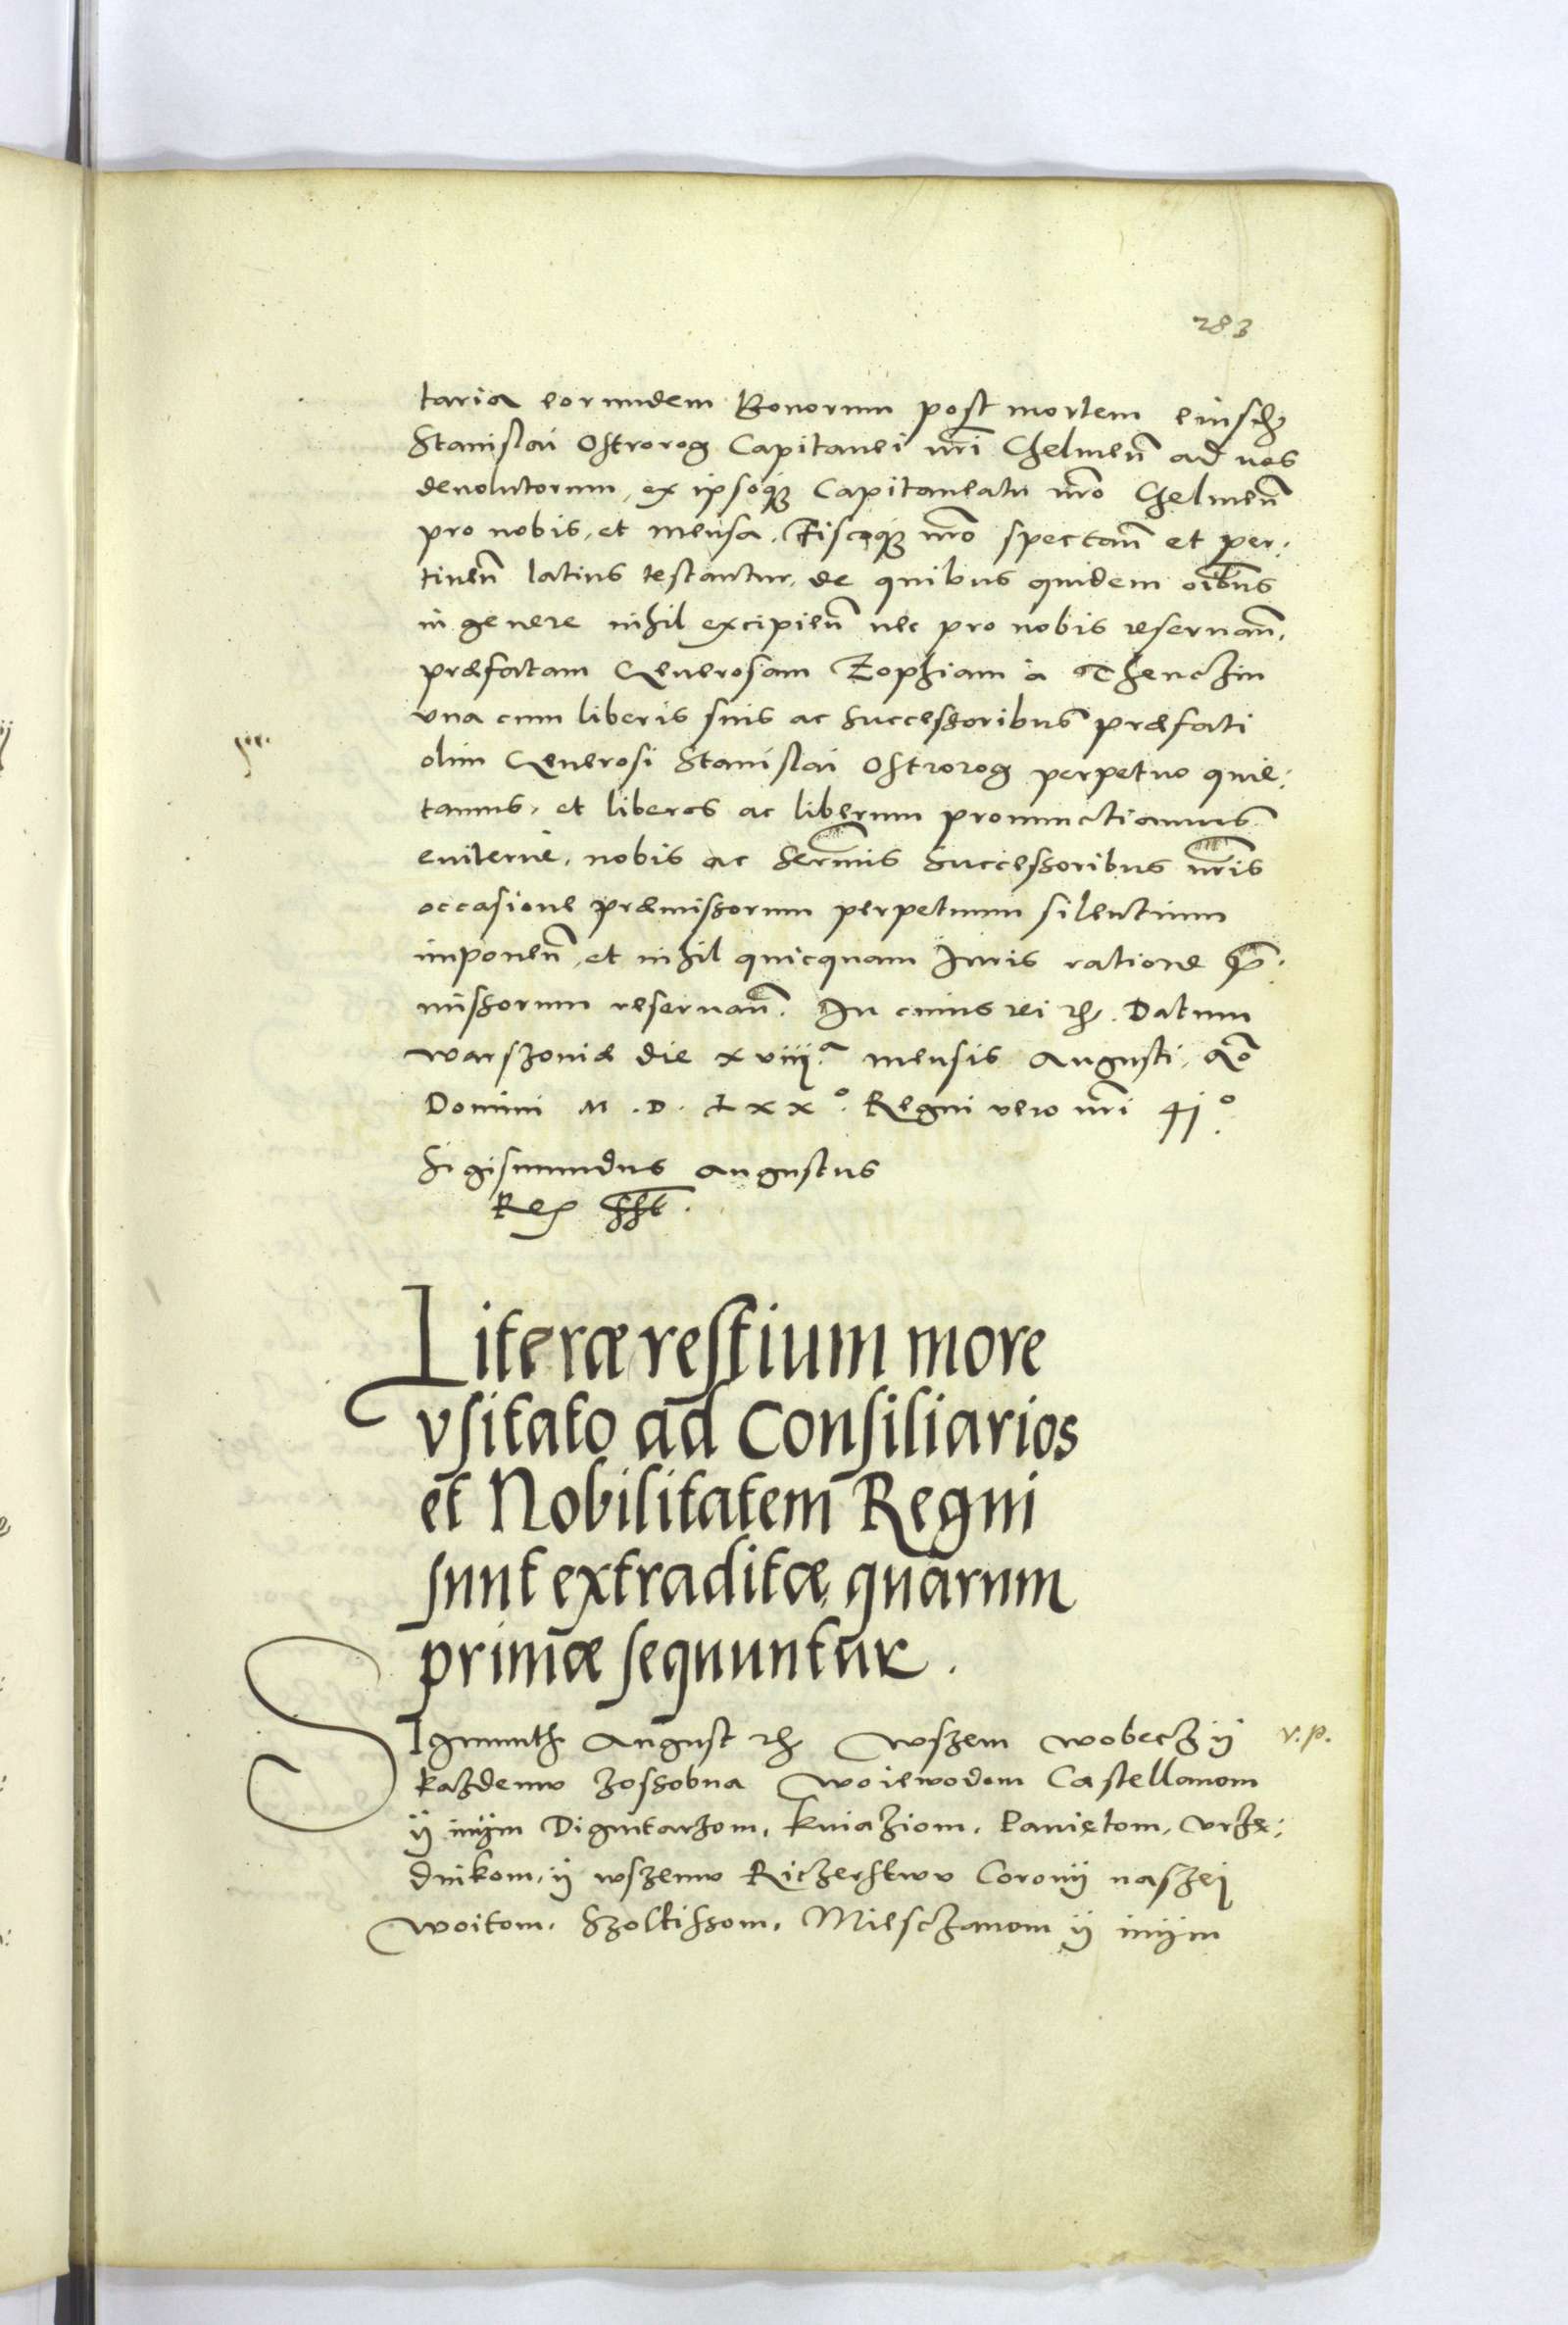 283
taria eorundem Bonorum post mortem eiusdē
Stanislai Ostrorog Capitanei nr̃i Chelmen̄ ad nos
deuolutorum, ex ipsoq₃ Capitaneatu nr̃o Chelmen̄
pro nobis, et mensa, Fiscoq₃ nr̃o spectan̄ et per:
tinen̄ latius testantur, de quibus quidem oīb̃us
in genere nihil excipien̄ nec pro nobis reseruan̄,
præfatam Generosam Zophiam à Thenczin
vna cum liberis suis ac successoribus præfati
olim Generosi Stanislai Ostrorog perpetuo quie:
tamus, et liberos ac liberum pronunctiamus
euiternè, nobis ac Serm̃is Successoribus nr̃is
occasione præmissorum perpetuum silentium
imponen̄, et nihil quicquam Iuris ratione p̃:
missorum reseruan̄. In cuius rei &. Datum
Warszoviæ die xviiij.ᵃ mensis Augusti, Aō
Domini M.D.Lxxᵒ. Regni vero nr̃i 41ᵒ.
Sigismundus Augustus
Rex sst̄.
Literæ restium more
vsitato ad Consiliarios
et Nobilitatem Regni
sunt extraditæ, quarum
primæ sequuntur.
SIgmunth August & Wszem wobecz ÿ v.p.
kazdemv zossobna Woiewodom Castellanom
ÿ inÿm Dignitarzom, Kniaziom, Paniętom, vrzę:
dnikom, ÿ wszemv Riczerstwv Coronÿ naszeÿ
Woitom, Szoltissom, Miesczanom ÿ inÿm